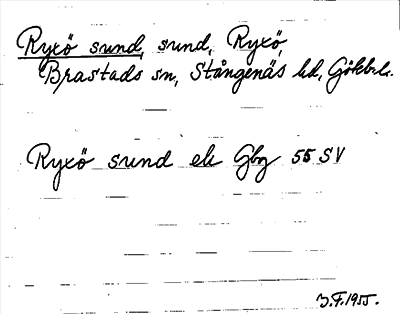 Ryxö sund, sund, Ryxö,
Brastads sn, Stångenäs hd, Gökbl.
Ryxö sund ek Gbg 55 SV
J.F. 1955.